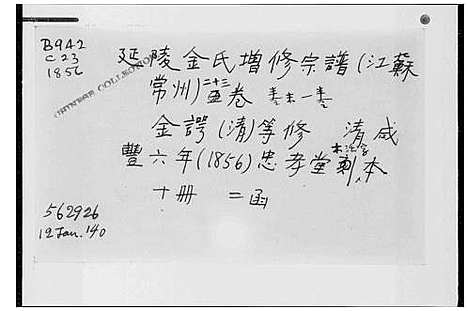 B9A2
C23
1856
CHINESE COLLECTION
延陵金氏增修宗譜(江蘇
常州)二十三卷 卷末一卷
金諤(清)等修 清咸
豐六年(1856)忠孝堂木活字刻本
十冊 二函
562926
12 Jan. '40